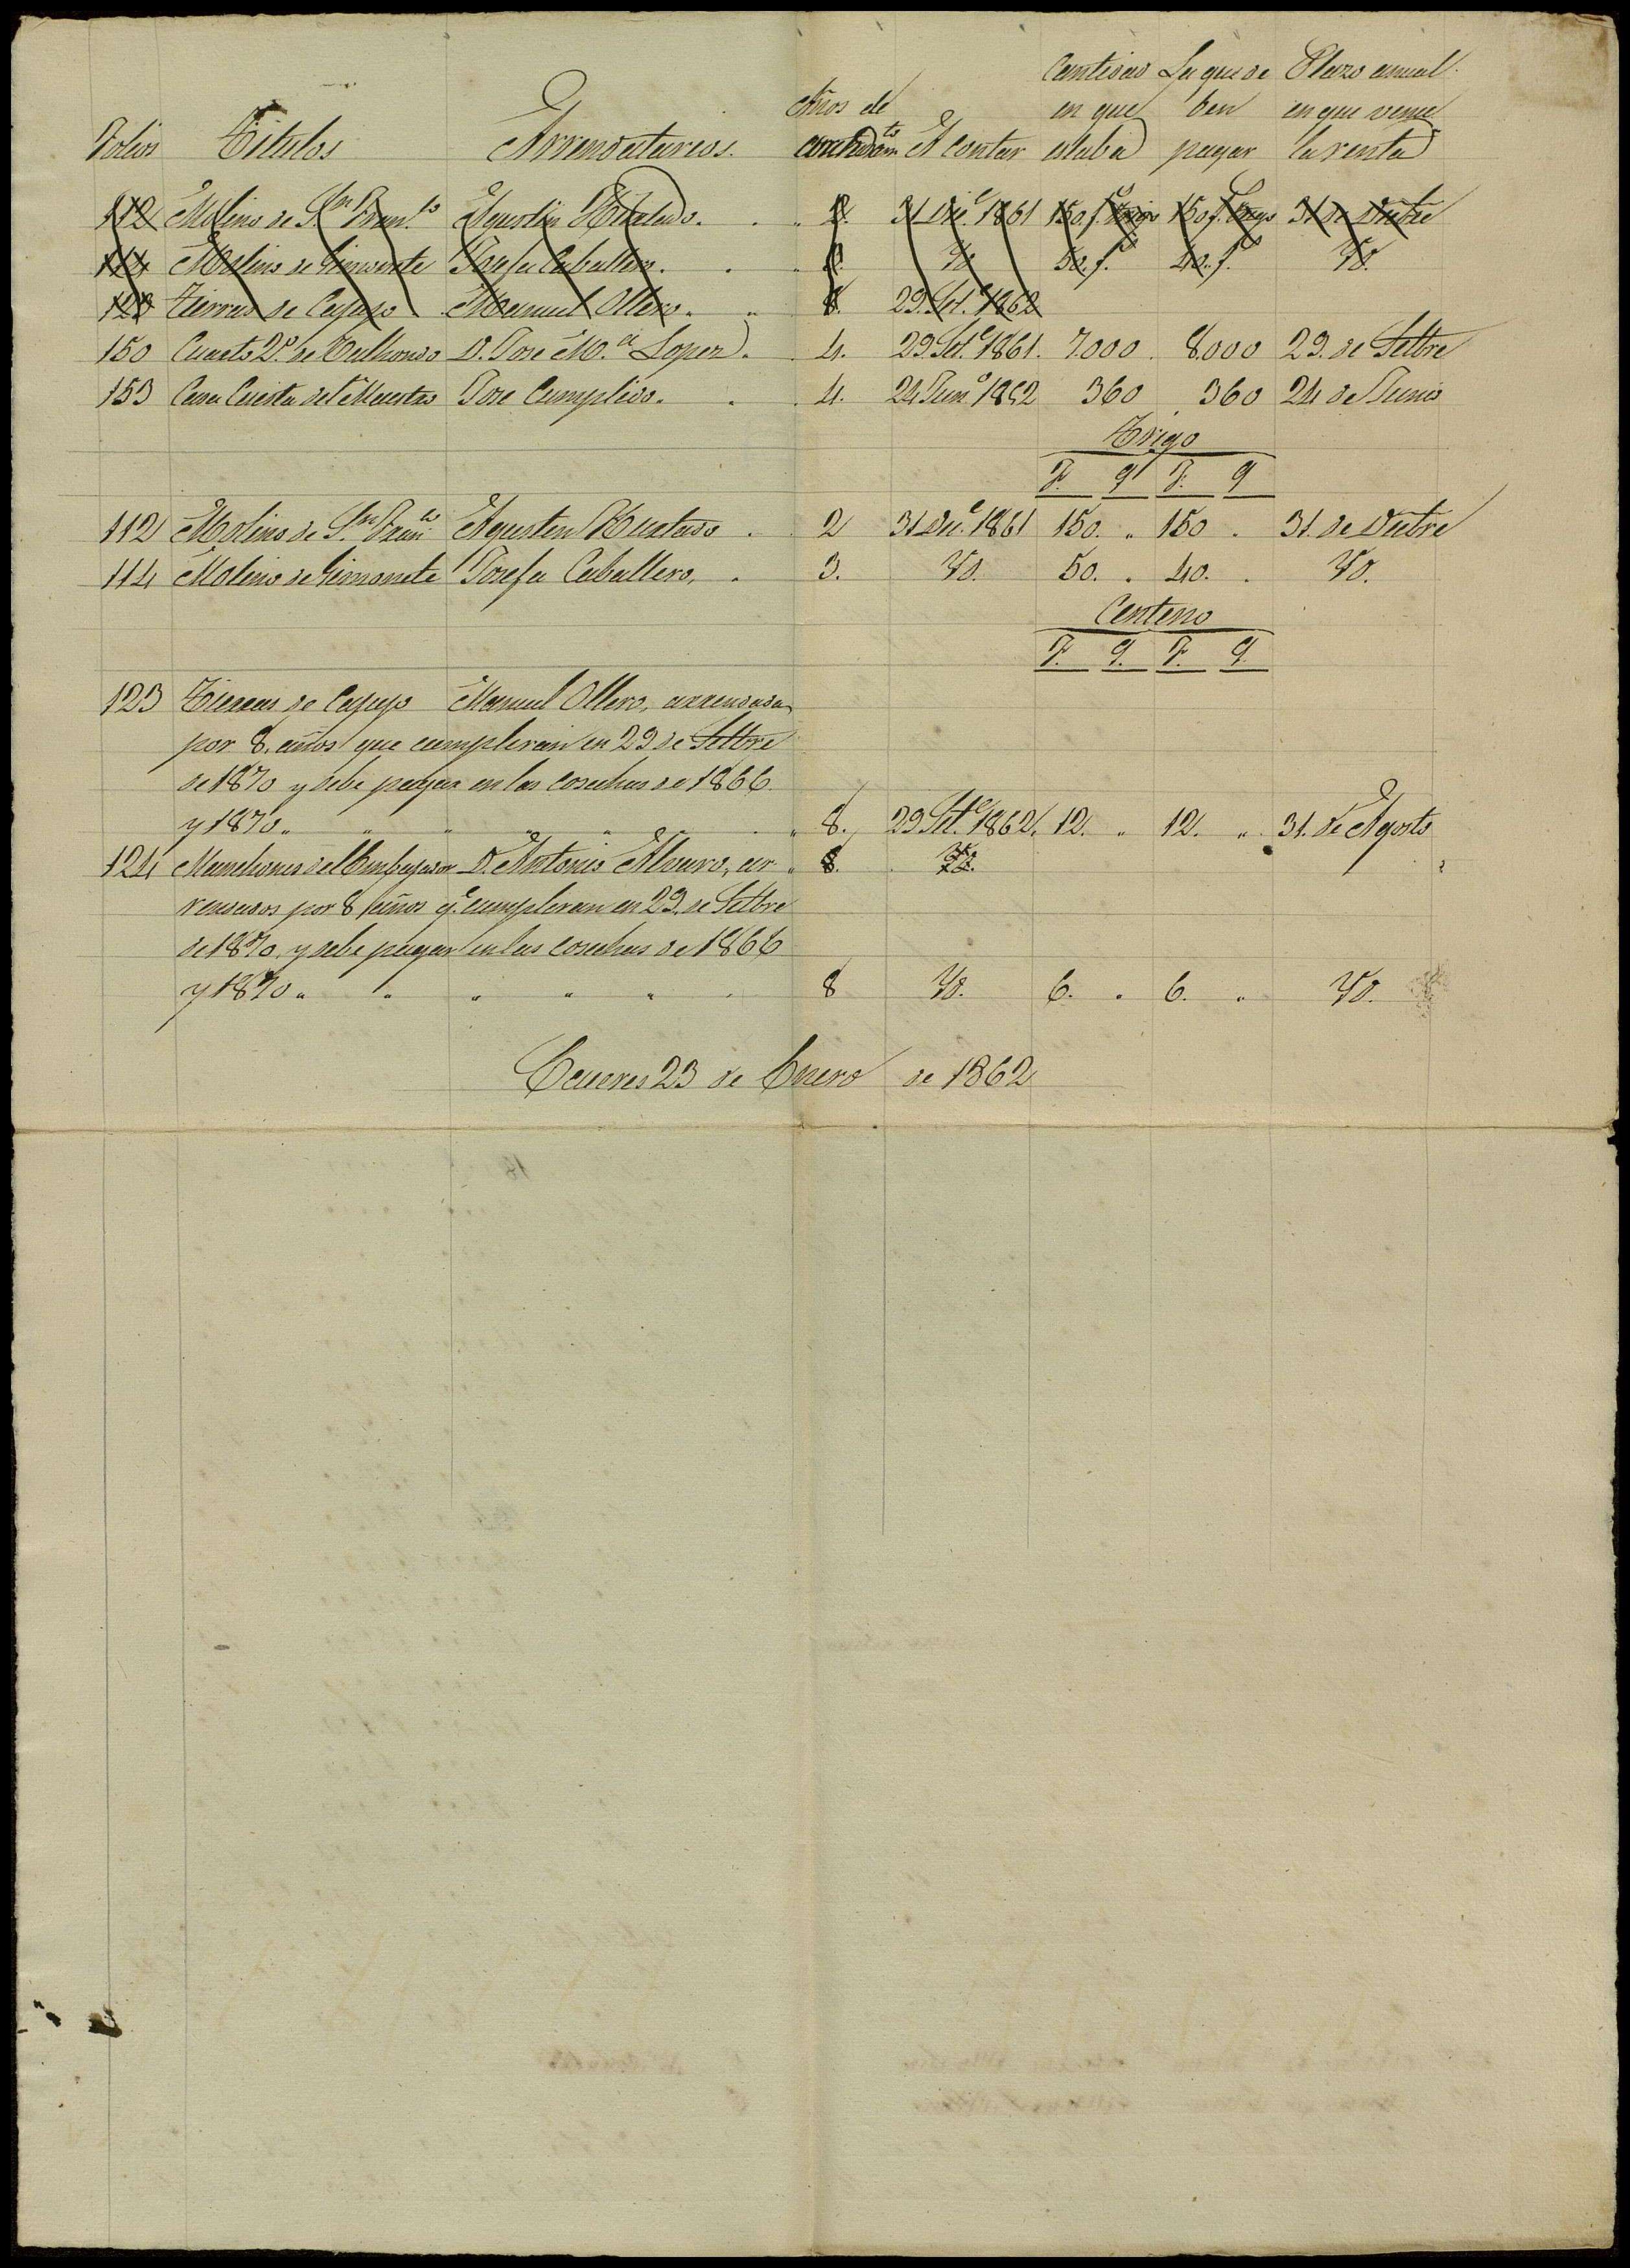 Cantidad La que de Plazo anual
Años de en que ben en que vence
Folios Titulos Arrendatarios. arrendam.to A contar estaba pagar la renta
112 Molino de S.n Fran.co Agustin Hurtado. 2. 31 Dic.e 1861 150 f.s trigo 150 f. trigo 31 de Dicbre
114 Molino de Simonete Josefa Caballero. 3. Yd. 50. f.s 40. f.s Yd.
123 Tierras de Capujo Manuel Ollero. 8. 29. Set.e 1862
150 Cuarto 2.º de D. Jose M.a Lopez. 4. 29 Set.e 1861. 7.000 8.000 29. de Setbre
153 Casa Cuesta del Maestro Jose Cumplido. 4. 24 Jun.o 1862 360 360 24 de Junio
Trigo
F. C F. C
112 Molino de S.n Fran.co Agustin Hurtado 2 31 Dic.e 1861 150. " 150 . 31. de Dicbre
114 Molino de Simonete Josefa Caballero, 3. Yd. 50. . 40. . Yd.
Centeno
F. C. F. C.
123 Tierras de Capujo Manuel Ollero, arrendada
por 8. años que cumpliran en 29 de Setbre
de 1870 y debe pagar en las cosechas de 1866
y 1870 " " " " " " 8. 29 Set.e 1862. 12. " 12. " 31. de Agosto
124 Manchones del Embajador D. Antonio Alvaro, ar 8. Yd.
rendados por 8 años q.e cumpliran en 29 de Setbre
de 1870, y debe pagar en las cosechas de 1866
y 1870 " " " " " 8 Yd. 6. " 6. " Yd.
Caceres 23 de Enero de 1862